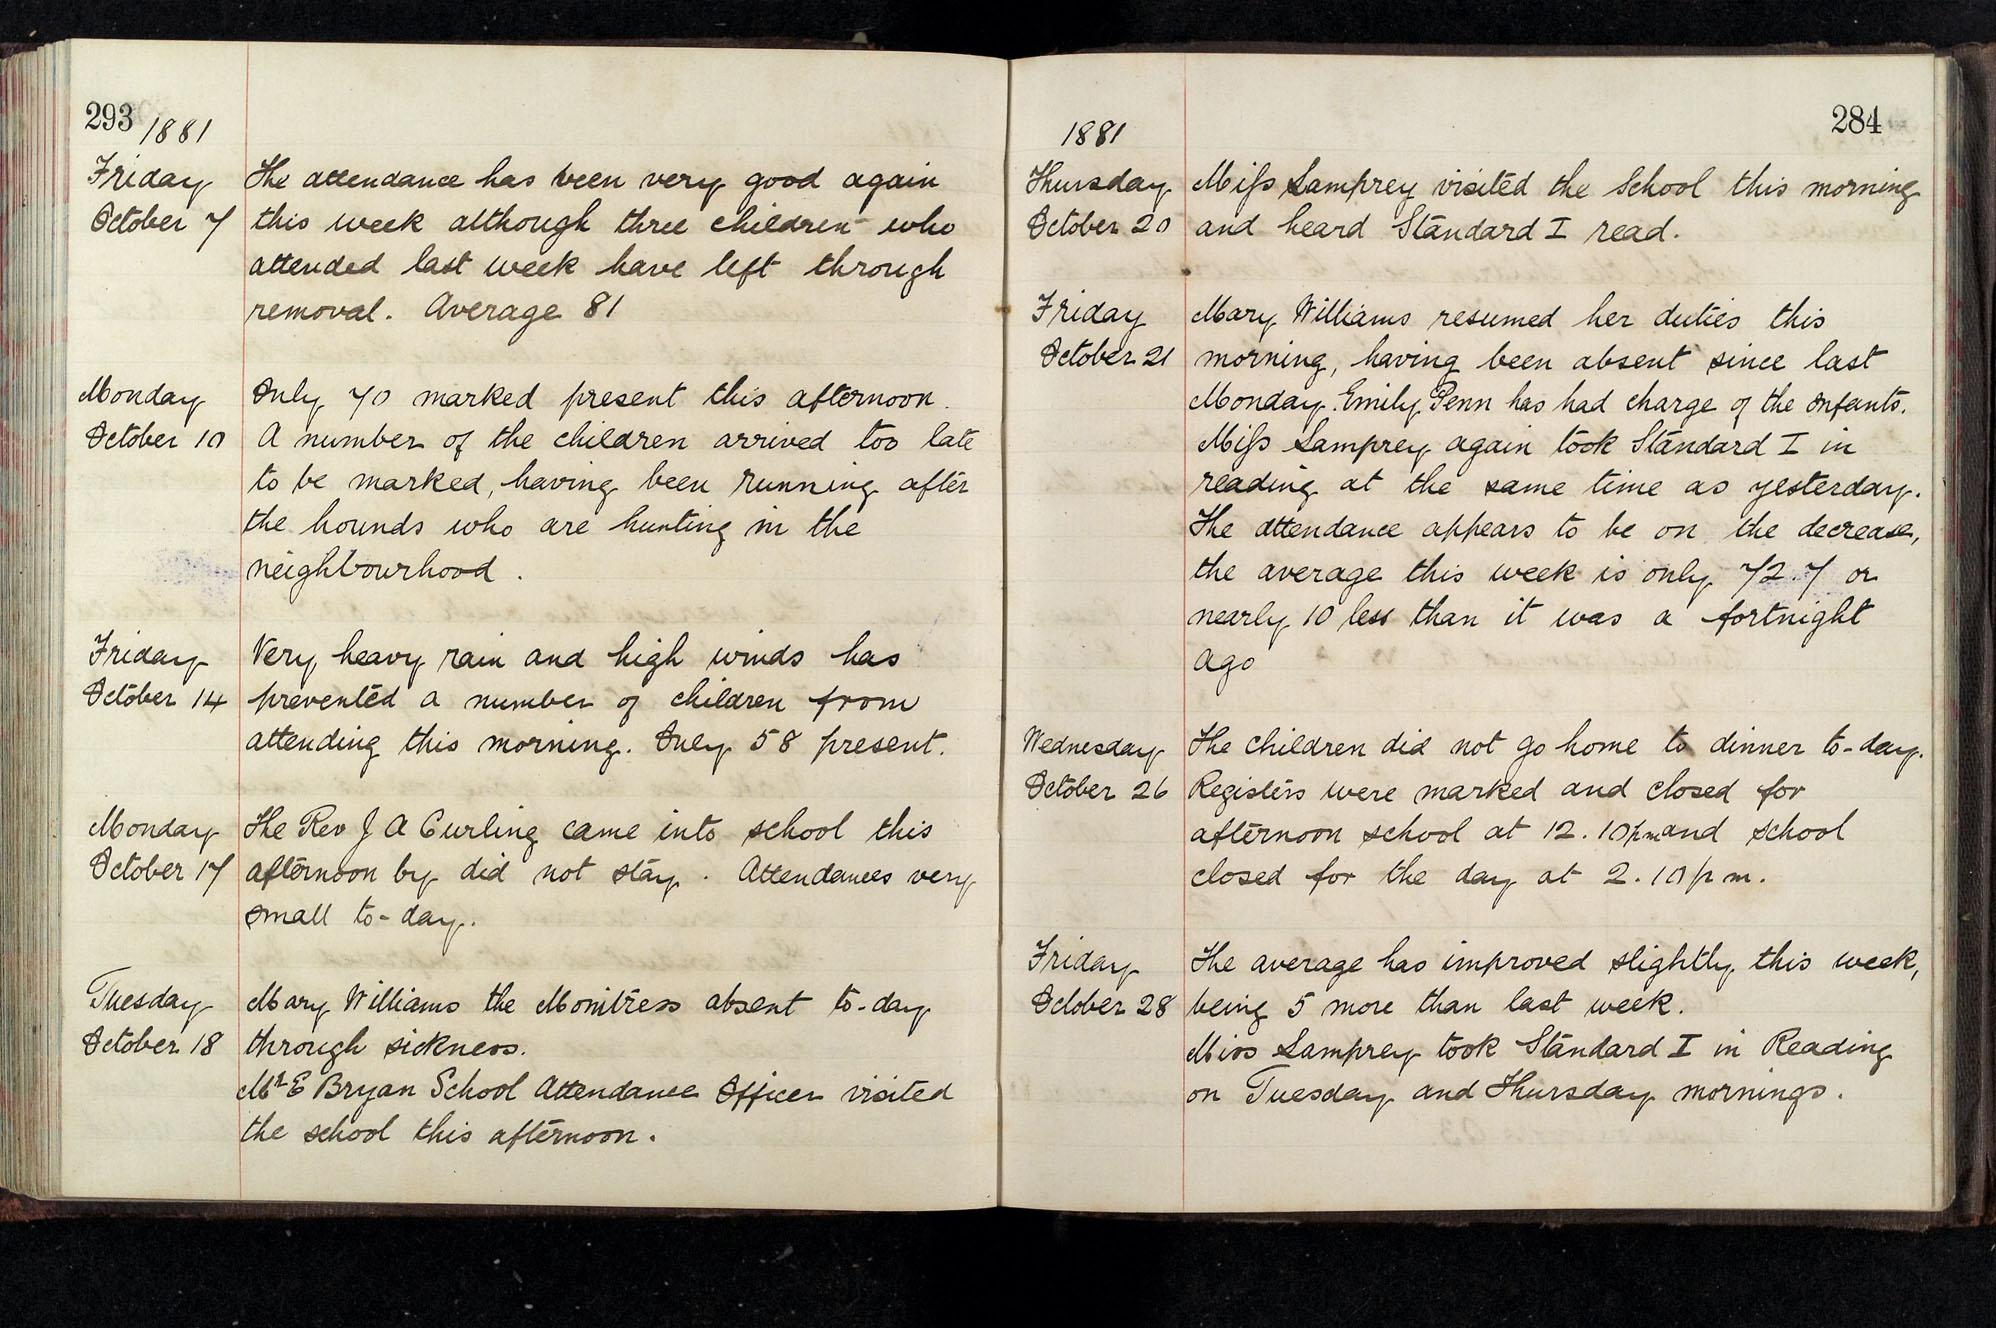 293
1881
Friday
October 7
The attendance has been very good again
this week although three children who
attended last week have left through
removal. Average 81
Monday
October 10
Only 70 marked present this afternoon.
A number of the children arrived too late
to be marked, having been running after
the hounds who are hunting in the
neighbourhood.
Friday
October 14
Very heavy rain and high winds has
prevented a number of children from
attending this morning. Only 58 present.
Monday
October 17
The Rev J A Curling came into school this
afternoon by did not stay. Attendances very
small to-day.
Tuesday
October 18
Mary Williams the Monitress absent to-day
through sickness.
Mr E Bryan School Attendance Officer visited
the school this afternoon.
284
1881
Thursday
October 20
Miss Lamprey visited the School this morning
and heard Standard I read.
Friday
October 21
Mary Williams resumed her duties this
morning, having been absent since last
Monday. Emily Penn has had charge of the Infants.
Miss Lamprey again took Standard I in
reading at the same time as yesterday.
The attendance appears to be on the decrease,
the average this week is only 72.7 or
nearly 10 less than it was a fortnight
ago
Wednesday
October 26
The children did not go home to dinner to-day.
Registers were marked and closed for
afternoon school at 12.10pm and school
closed for the day at 2.10pm.
Friday
October 28
The average has improved slightly this week,
being 5 more than last week.
Miss Lamprey took Standard I in Reading
on Tuesday and Thursday mornings.